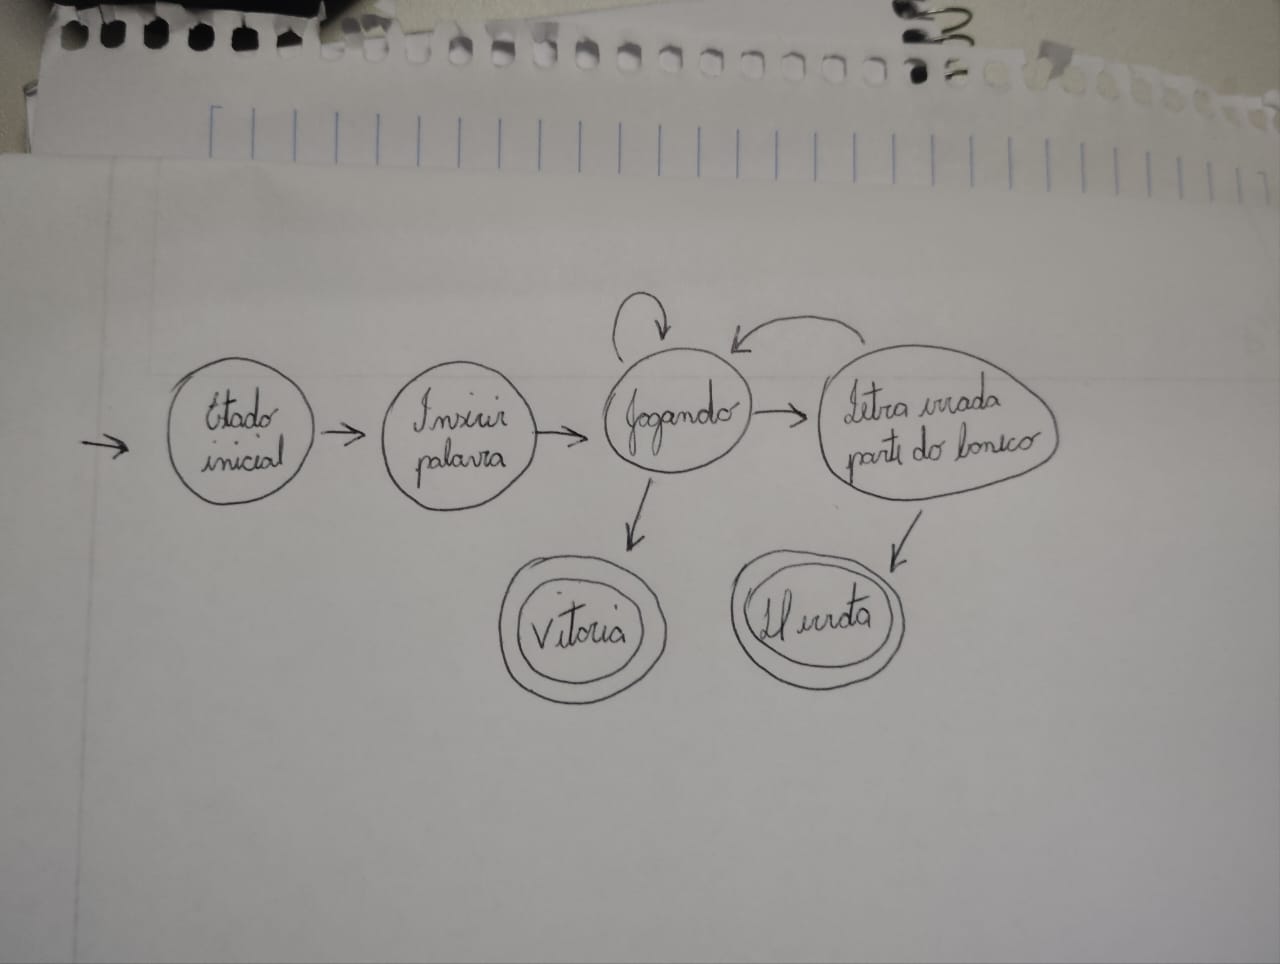 Etado
inicial
Inserir
palavra
Jogando
Letra errada
parte do boneco
Vitoria
Derrota